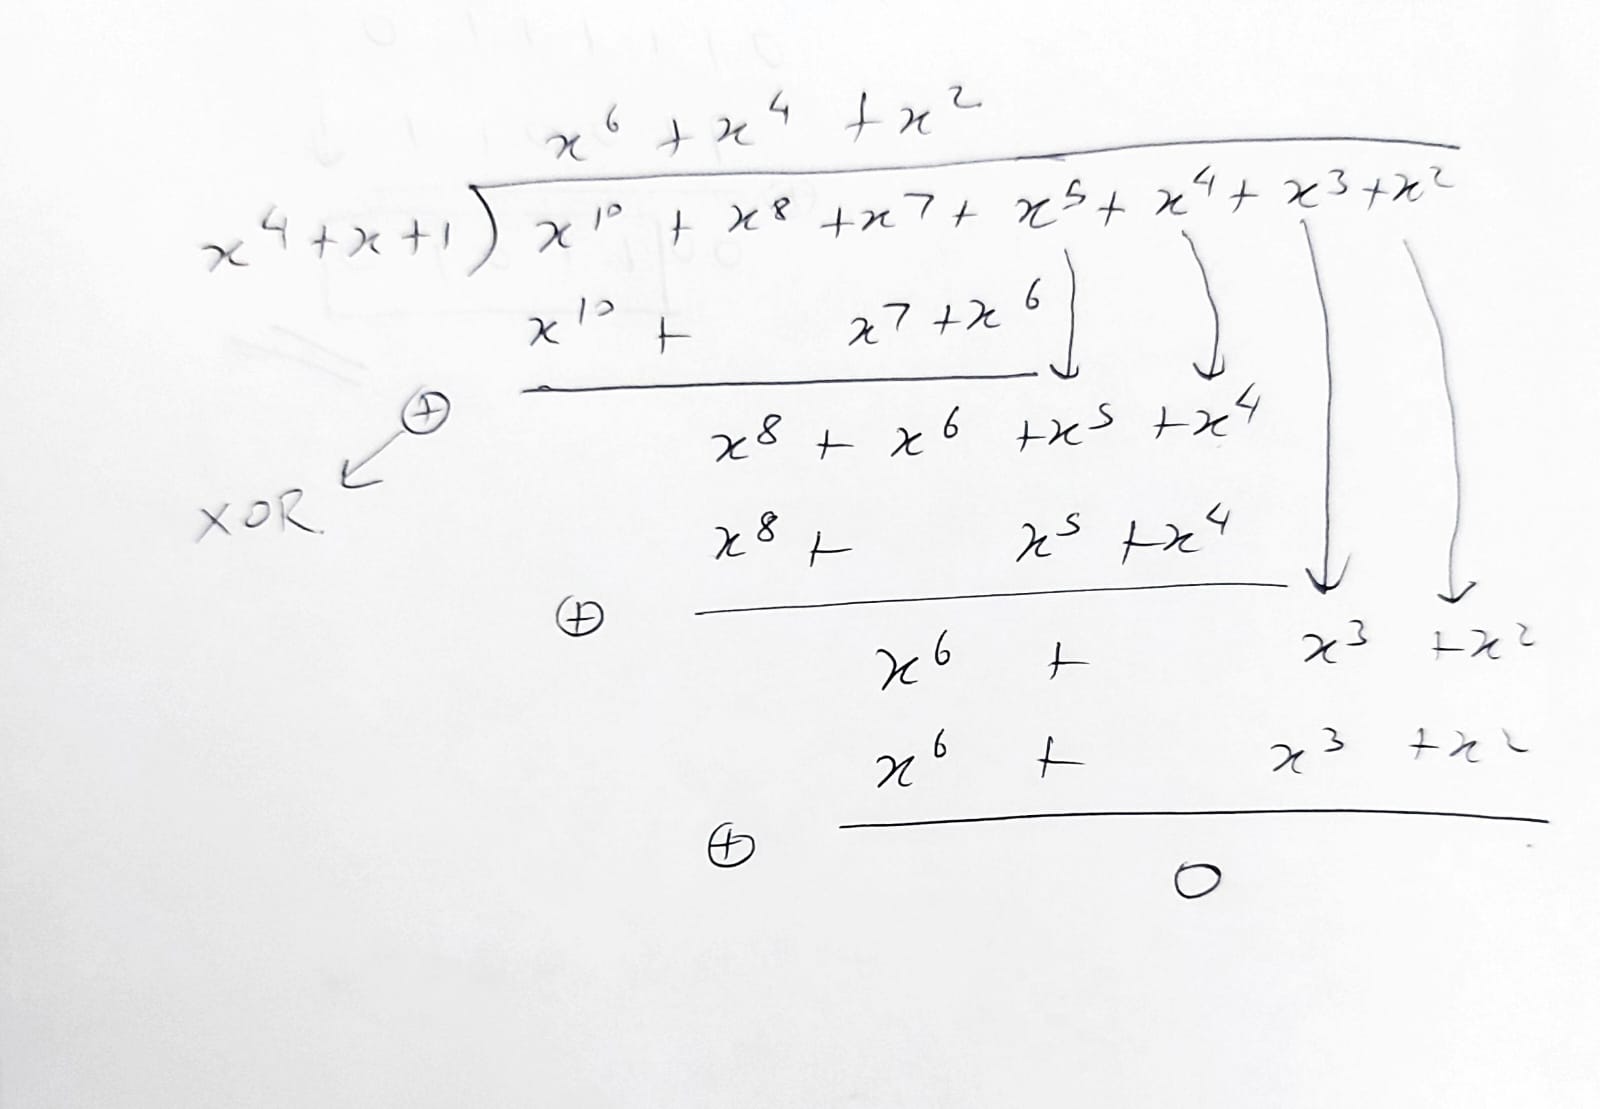 x⁶ + x⁴ + x²
x⁴ + x + 1 ) x¹⁰ + x⁸ + x⁷ + x⁵ + x⁴ + x³ + x²
x¹⁰ + x⁷ + x⁶
⊕
x⁸ + x⁶ + x⁵ + x⁴
XOR
x⁸ + x⁵ + x⁴
⊕
x⁶ + x³ + x²
x⁶ + x³ + x²
⊕
0